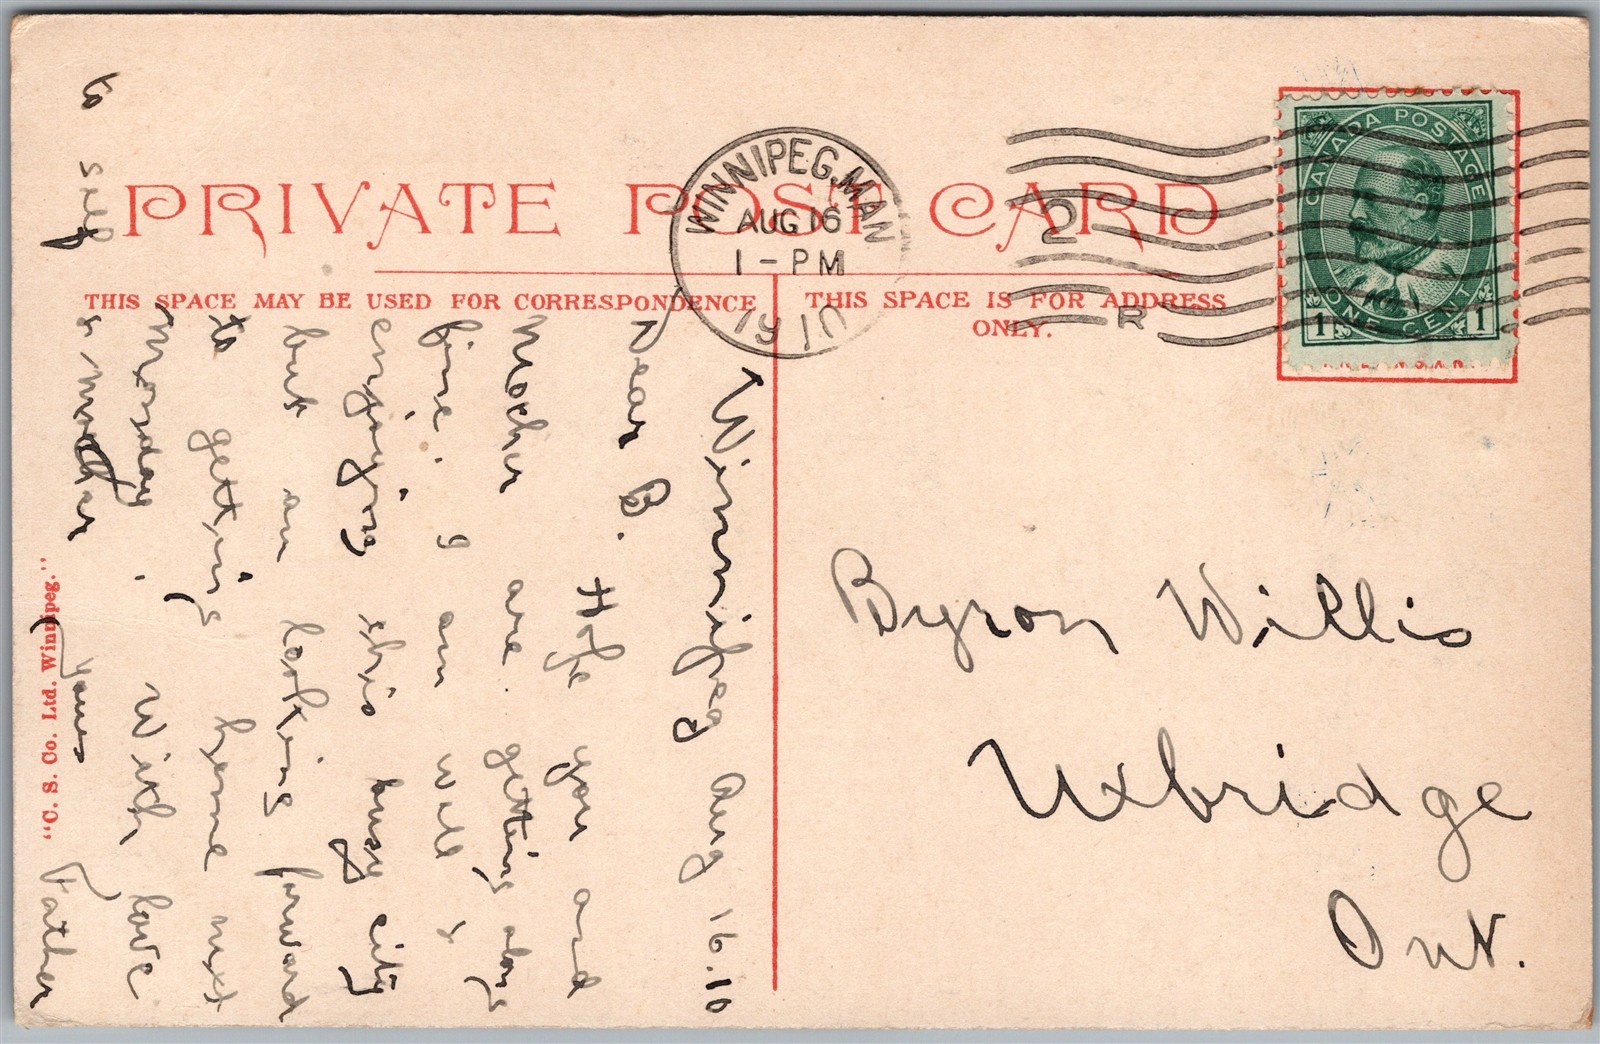 PRIVATE POST CARD
THIS SPACE MAY BE USED FOR CORRESPONDENCE
THIS SPACE IS FOR ADDRESS
ONLY.
WINNIPEG, MAN
AUG 16
1-PM
1910
2
R
CANADA POSTAGE
1 ONE CENT 1
Winnipeg Aug 16.10
Dear B.
Hope you and
Mother are getting along
fine. I am well &
enjoying this busy city
but am looking forward
to getting home next
Monday. With love
to self & mother
Yours Father
Byron Willis
Uxbridge
Ont.
"C. S. Co. Ltd. Winnipeg."